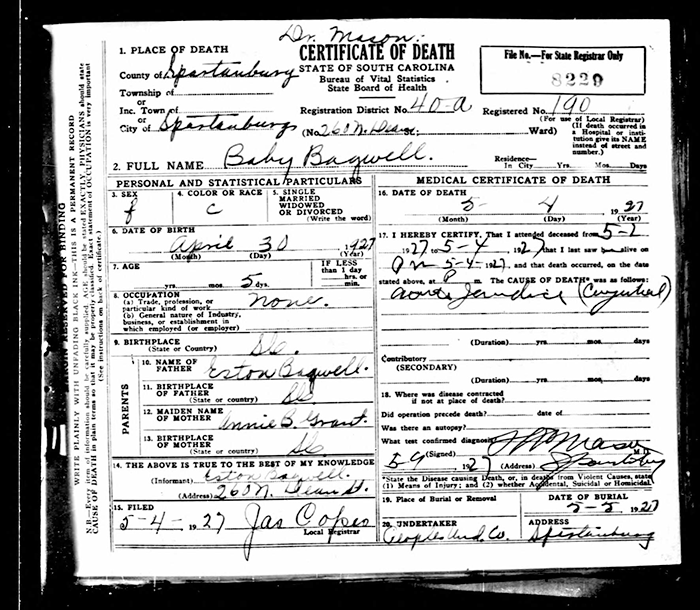 Dr. Mason
1. PLACE OF DEATH
CERTIFICATE OF DEATH
STATE OF SOUTH CAROLINA
Bureau of Vital Statistics
State Board of Health
File No.—For State Registrar Only
8229
County of Spartanburg
Township of
or
Inc. Town of
or
City of Spartanburg
Registration District No. 40-a Registered No. 190
(No. 260 N. Dean Ward)
(For use of Local Registrar)
(If death occurred in a Hospital or institution give its NAME instead of street and number.)
2. FULL NAME Baby Bagwell.
Residence—
In City Yrs. Mos. Days
PERSONAL AND STATISTICAL PARTICULARS
3. SEX
f
4. COLOR OR RACE
c
5. SINGLE
MARRIED
WIDOWED
OR DIVORCED
(Write the word)
6. DATE OF BIRTH
April 30 1927
(Month) (Day) (Year)
7. AGE
yrs. mos. 5 dys.
IF LESS
than 1 day
hrs. or
min.
8. OCCUPATION
(a) Trade, profession, or
particular kind of work none.
(b) General nature of Industry,
business, or establishment in
which employed (or employer)
9. BIRTHPLACE
(State or Country) SC.
PARENTS
10. NAME OF
FATHER Eston Bagwell.
11. BIRTHPLACE
OF FATHER SC
(State or country)
12. MAIDEN NAME
OF MOTHER Annie B. Grant.
13. BIRTHPLACE
OF MOTHER SC
(State or country)
14. THE ABOVE IS TRUE TO THE BEST OF MY KNOWLEDGE
(Informant) Eston Bagwell.
(Address) 260 N. Dean St.
15. FILED
5-4- 1927 Jas Copes
Local Registrar
MEDICAL CERTIFICATE OF DEATH
16. DATE OF DEATH
5- 4 1927
(Month) (Day) (Year)
17. I HEREBY CERTIFY, That I attended deceased from 5-2
1927 to 5-4, 1927 that I last saw alive on
5-4-1927, and that death occurred, on the date
stated above, at P m. The CAUSE OF DEATH* was as follows:
(Duration) yrs. mos. days
Contributory
(SECONDARY)
(Duration) yrs. mos. days
18. Where was disease contracted
if not at place of death?
Did operation precede death? date of
Was there an autopsy?
What test confirmed diagnosis?
(Signed) Mason M.D.
5-9 1927 (Address) Spartanburg
*State the Disease causing Death, or, in deaths from Violent Causes, state
(1) Means of Injury; and (2) whether Accidental, Suicidal or Homicidal.
19. Place of Burial or Removal
DATE OF BURIAL
5-5 1927
20. UNDERTAKER
Peoples Und. Co.
ADDRESS
Spartanburg
MARGIN RESERVED FOR BINDING
WRITE PLAINLY WITH UNFADING BLACK INK—THIS IS A PERMANENT RECORD
N.B.—Every item of information should be carefully supplied. AGE should be stated EXACTLY. PHYSICIANS should state
CAUSE OF DEATH in plain terms so that it may be properly classified. Exact statement of OCCUPATION is very important
(See instructions on back of certificate.)